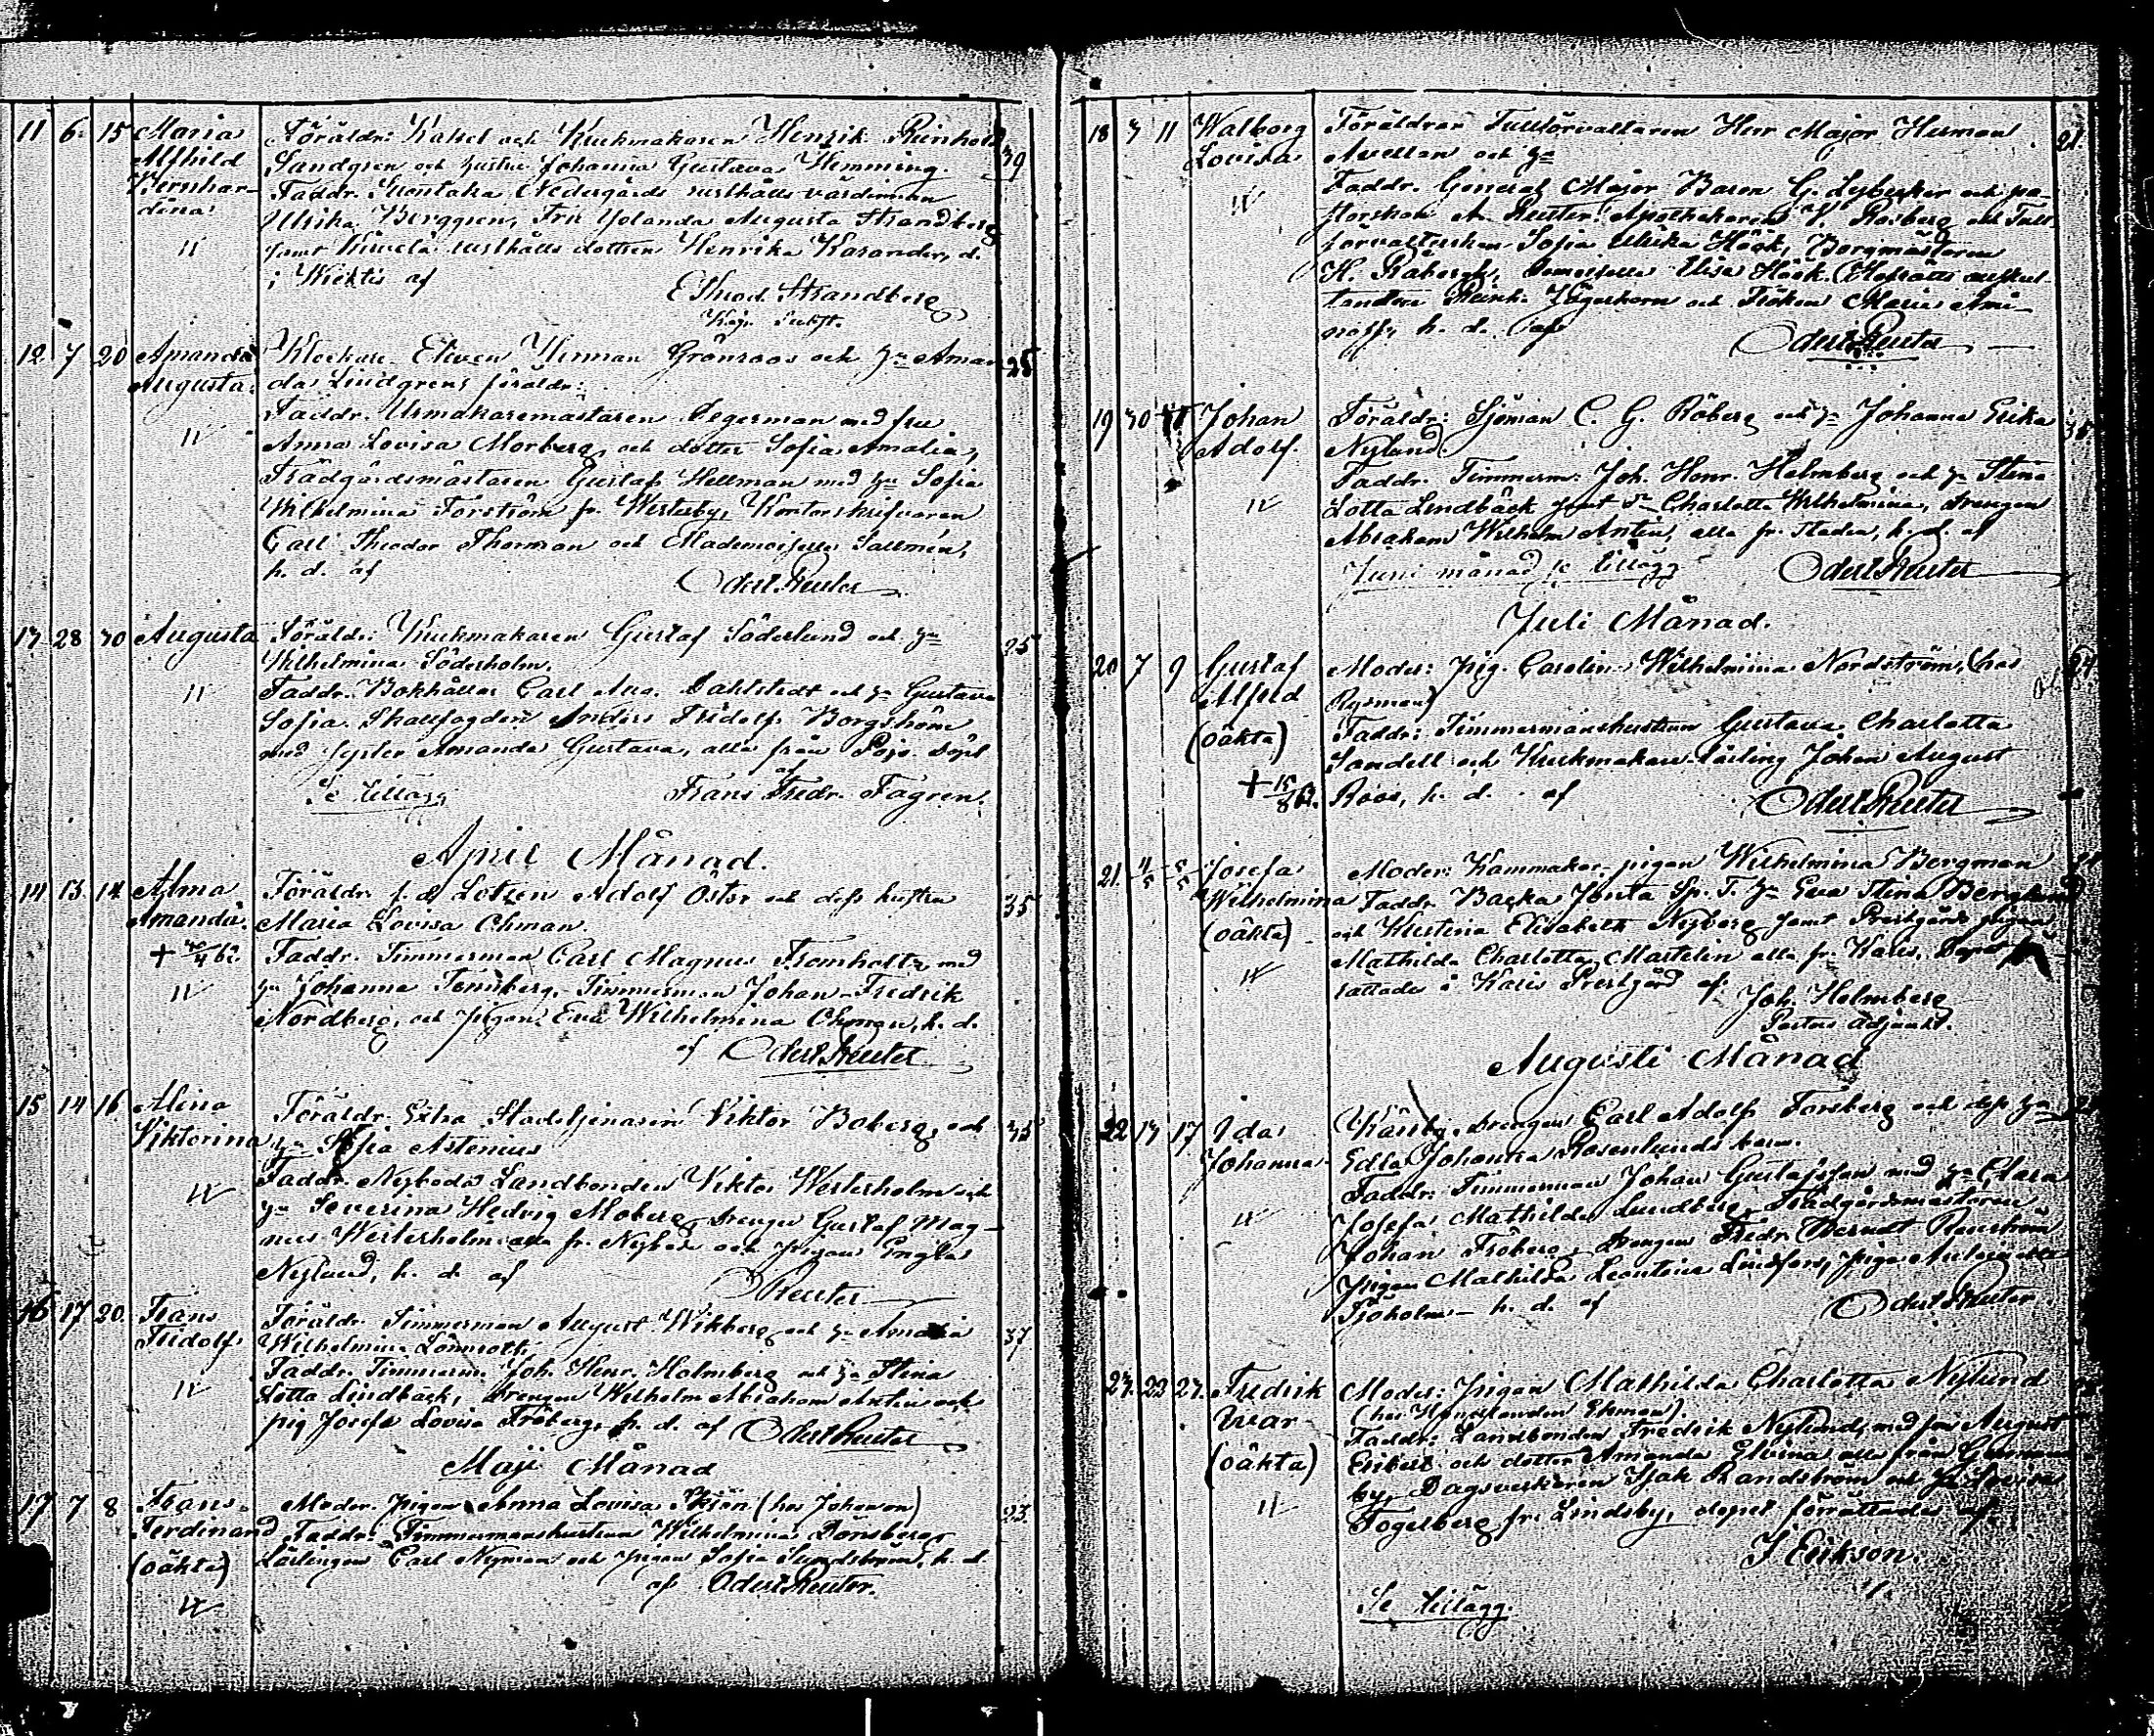 11 6. 15 Maria Alfhild Bernhardina
Föräldr: Kakel och Krukmakaren Henrik Reinhold 39
Sandgren och hustru Johanna Gustava Hemming.
Faddr. Suontaka Nedergårds rusthålls värdinnan
Ulrika Berggren, Fru Yolanda Augusta Strandberg
samt Kiwelä rusthålls dottren Henrika Karander, d.
i Wichtis af
Strandberg
Kap.
12. 7 20 Amanda Augusta.
Klockare Eleven Herman Grönroos och hu Aman- 25
da Lindgrens föräldr:
Faddr. Urmakaremästaren Segerman med fru
Anna Lovisa Morberg och dotter Sofia Amalia,
Trädgårdsmästaren Gustaf Hellman med hu Sofia
Wilhelmina Forström fr. Westerby, Kontorskrifvaren
Carl Theodor Thorman och Mademoiselle Sallmén,
h. d. af
Odert Reuter
13 28 30 Augusta
Föräldr: Krukmakaren Gustaf Söderlund och hu 25
Wilhelmina Söderholm.
Faddr. Bokhållar Carl Aug. Dahlstedt och hu Gustava
Sofia. Stallfogden Anders Fridolf Borgström
med syster Amanda Gustava, alla från Pojo. Döpt
af
Se tillägg Frans Fredr. Fagren.
April Månad.
14 13. 14. Alma Amanda.
Föräldr. f.d. Lotsen Adolf Öster och dess hustru 35
Maria Lovisa Öhman.
Faddr. Timmerman Carl Magnus Fromholtz med
hu Johanna Tennberg, Timmerman Johan Fredrik
Nordberg, och pigan Eva Wilhelmina Öhman, h. d.
af Odert Reuter
15 14 16 Alina Viktorina
Föräldr. Extra Stadstjenaren Viktor Boberg och 35
hu Sofia Astenius
Faddr. Nyboda Landbonden Viktor Westerholm och
hu Severina Hedvig Moberg, drengen Gustaf Mag-
nus Westerholm alla fr. Nyboda och pigan Engla
Nylund, h. d. af
Reuter
16 17 20. Frans Fridolf
Föräldr. Timmerman August Wikberg och hu Amanda 37
Wilhelmina Lönnroth
Faddr. Timmerm. Joh. Henr. Holmberg och hu Stina
Lotta Lindbäck, drengen Wilhelm Abraham Antin och
pig Josefa Lovisa Fröberg, h. d. af Odert Reuter
Maji Månad
17 7 8 Frans Ferdinand (oäkta)
Moder. Pigan Anna Lovisa (hos Johanson) 23
Faddr. Timmermanshustrun Wilhelmina Dönsberg,
Lärlingen Carl Nyman och pigan Sofia Sundström, h. d.
af Odert Reuter.
18 3 11 Walborg Lovisa
Föräldrar Tullförvaltaren Herr Major Herman 21.
Avellan och hu
Faddr. General Major Baron G. Lybecker och pa-
storskan A. Reuter. Apothekaren V. Rosberg och Tull-
förvalterskan Sofia Ulrika Höök, Borgmästaren
H. Råbergh, Demoiselle Elise Höök. Hofrätts auskul-
tanten Reinh. Jägerhorn och Fröken Maria Ami-
noff, h. d. af
Odert Reuter
19 30 Johan Adolf.
Föräldr: Sjöman C. G. Röberg och hu Johanna Erika
Nylund
Faddr. Timmerm: Joh. Henr. Holmberg och hu Stina
Lotta Lindbäck samt Charlotta Wilhelmina, drengen
Abraham Wilhelm Antin, alla fr. staden, h. d. af
Juni månad se tillägg Odert Reuter
Juli Månad.
20 7 9 Gustaf Alfred (oäkta) + 15/8 62.
Moder: pig. Carolin. Wilhelmina Nordström, (hos
Rysman)
Faddr: Timmermanshustrun Gustava Charlotta
Sandell och Krukmakare lärling Johan August
Roos, h. d. af
Odert Reuter
21. 4/5 5/5 Josefa Wilhelmina (oäkta)
Moder: Kammaker. pigan Wilhelmina Bergman
Faddr. Backa Josta Sp. T. hu Eva Stina Berglund
och Kristina Elisabeth Nyberg samt Prestgårds pigan
Mathilda Charlotta Martelin alla fr. Karis. Dopet för-
rättades i Karis Prestgård af
Joh. Holmberg
Pastors Adjunkt.
Augusti Månad
22 13 17 Ida Johanna
Kärrby drengen Carl Adolf Forsberg och dess hu
Edla Johanna Rosenlunds barn.
Faddr: Timmerman Johan Gustafsson med hu Clara
Josefa Mathilda Lundberg, Trädgårdsmästaren
Johan Fröberg, Drengen Fredr. Bernat Renström
Pigan Mathilda Leontina Lindfors, Piga
Sjöholm h. d. af Odert Reuter
23. 22 27. Fredrik Ivar (oäkta)
Moder: Pigan Mathilda Charlotta Nylund
(hos Handlanden Ekman)
Faddr: Landbonden Fredrik Nylund, med son August
Enbert och dotter Amanda Elvira alla från
by, Dagsverkaren Isak Randström och hu Lovisa
Fogelberg fr. Lindsby, dopet förrättades af
J Erikson.
Se tillägg.